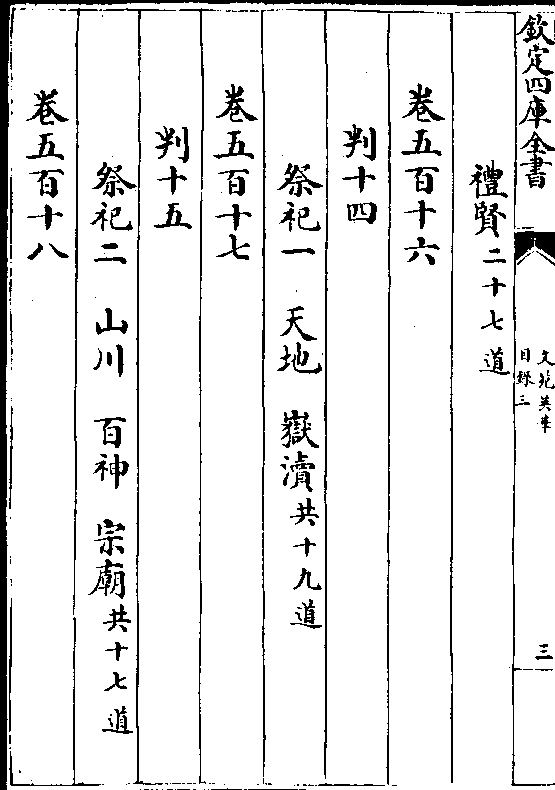 欽定四庫全書
文苑英華
目錄三
三
禮賢二十七道
卷五百十六
判十四
祭祀一 天地 嶽瀆共十九道
卷五百十七
判十五
祭祀二 山川 百神 宗廟共十七道
卷五百十八